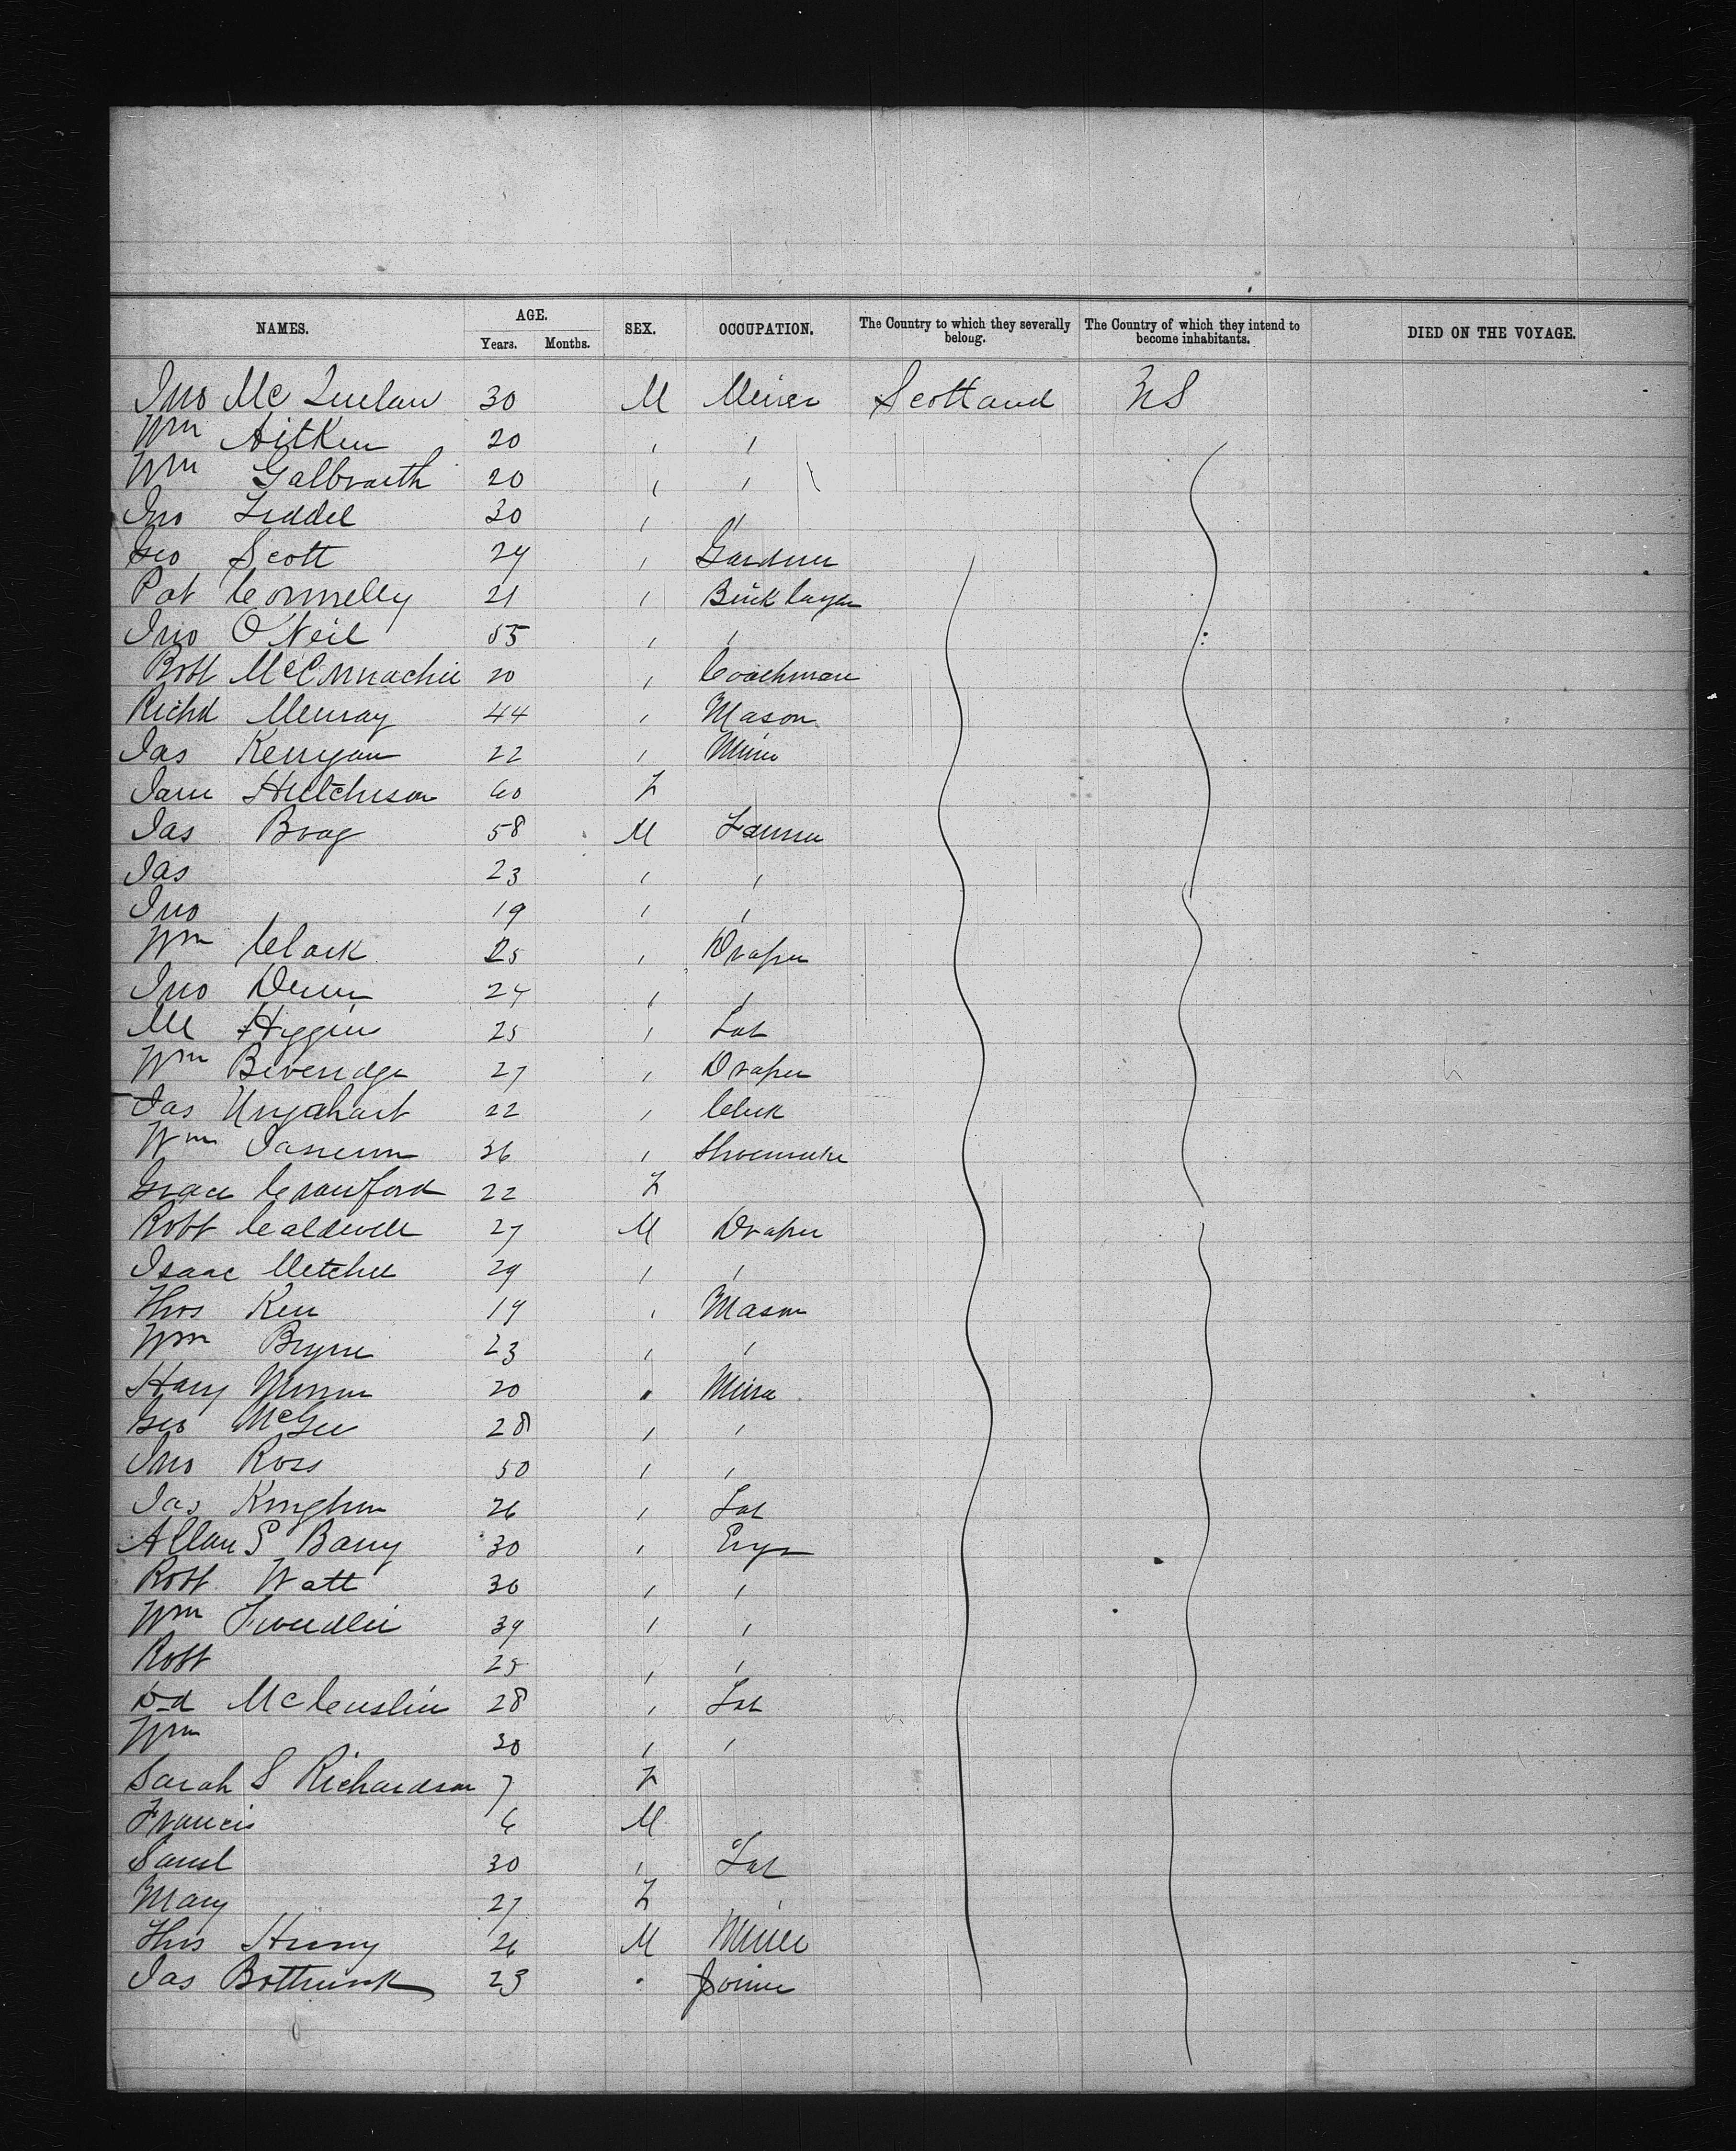 NAMES. AGE. SEX. OCCUPATION. The Country to which they severally belong. The Country of which they intend to become inhabitants. DIED ON THE VOYAGE.
Years. Months.
Jno Mc 30 M Miner Scotland US
Wm Aitken 20 " "
Wm Galbraith 20 " "
Jno Liddel 30 " "
Geo Scott 24 " Gardner
Pat Connelly 21 " Bricklayer
Jno O'Neil 55 " "
Robt McConnachie 20 " Coachman
Richd Murray 44 " Mason
Jas Kerrygan 22 " Miner
Jane Hutchison 60 F
Jas Bray 58 M Farmer
Jas 23 " "
Jno 19 " "
Wm Clark 25 " Draper
Jno Dunn 24 " "
M Higgins 25 " Lab
Wm Beveridge 27 " Draper
Jas Urquhart 22 " Clerk
Wm Jameson 36 " Shoemaker
Grace Crawford 22 F
Robt Caldwell 27 M Draper
Isaac Mitchell 29 " "
Thos Kerr 19 " Mason
Wm Byrne 23 " "
Harry 20 " Miner
Geo McGee 28 " "
Jno Ross 50 " "
Jas Kinghorn 26 " Lab
Allan S Barry 30 " Engr
Robt Watt 30 " "
Wm Tweedlie 39 " "
Robt 25 " "
Dd McCuslin 28 " Lab
Wm 30 " "
Sarah S Richardson 7 F
Francis 6 M
Saml 30 " Lab
Mary 27 F "
Thos Henry 26 M Miner
Jas Bothwick 23 " Joiner